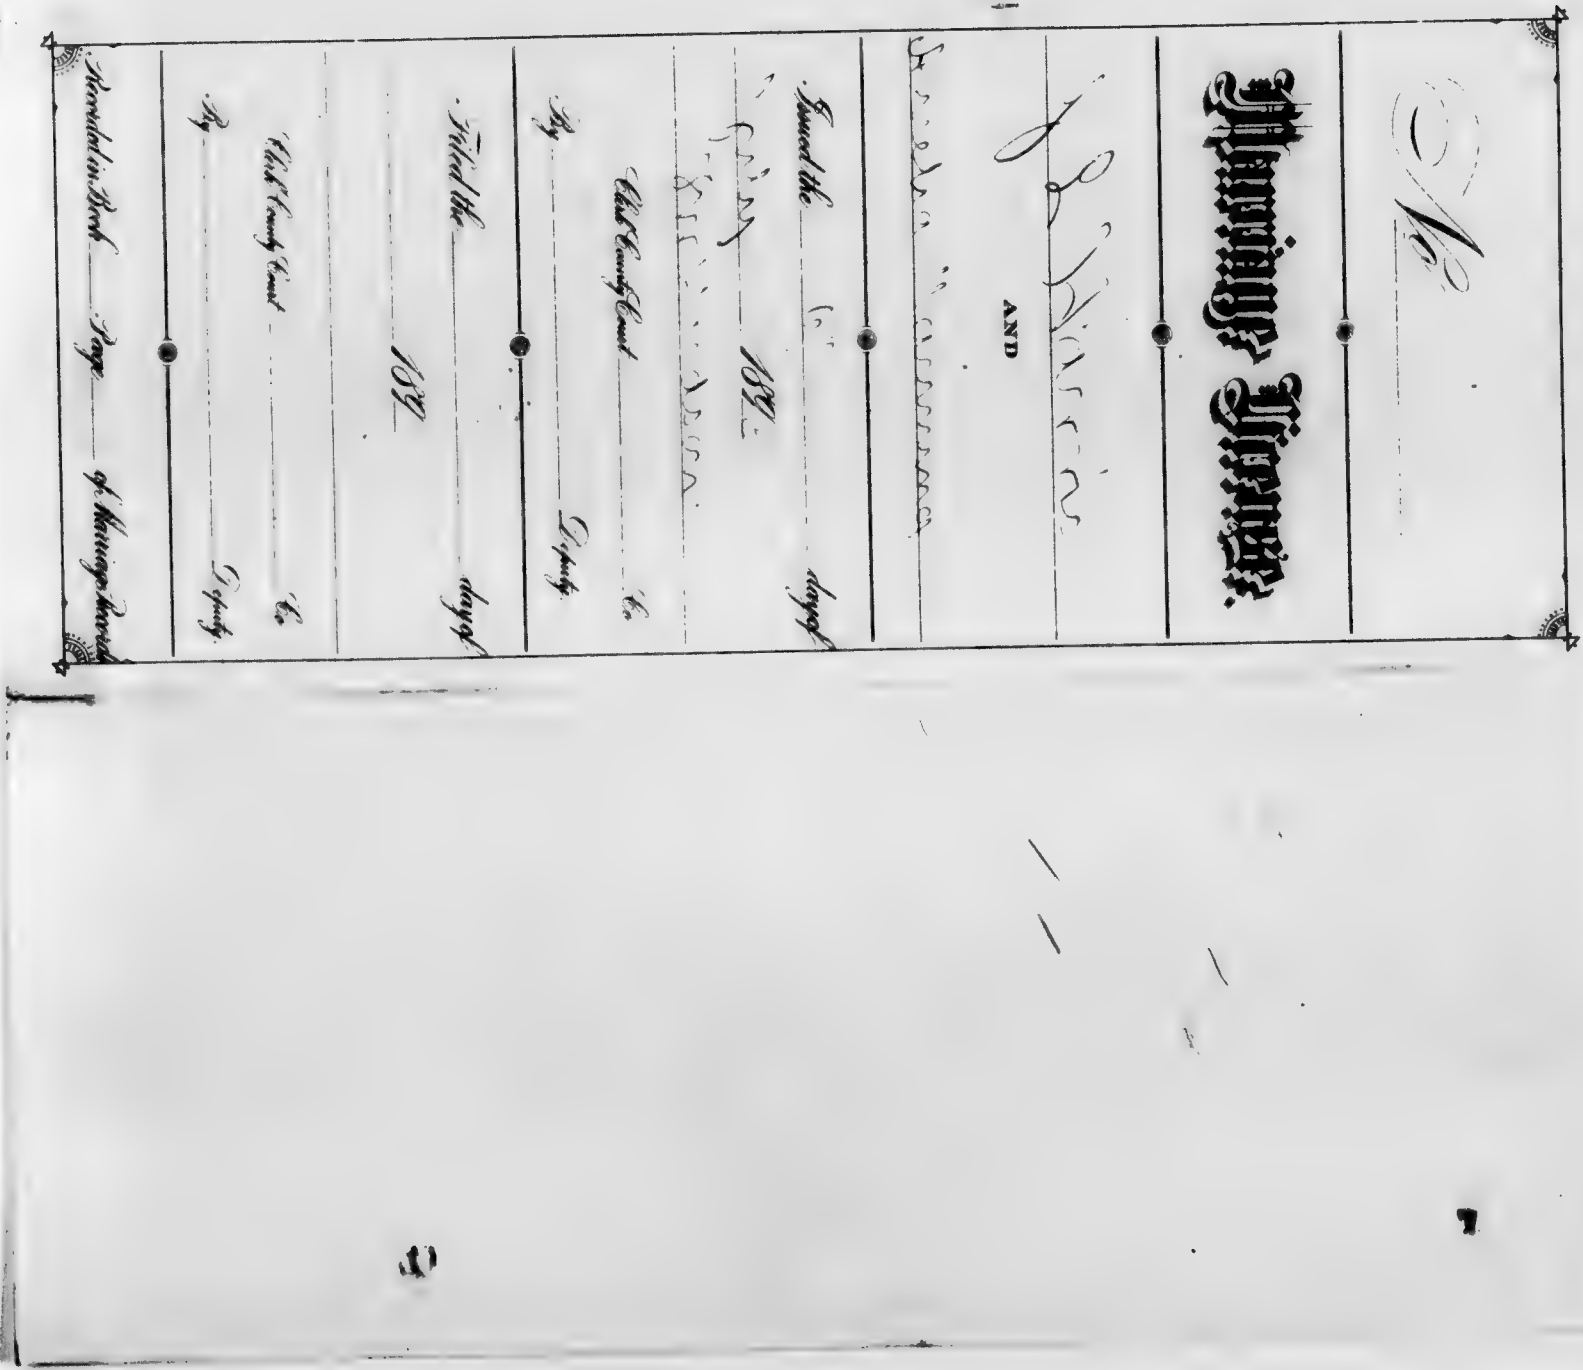 No.
Marriage License.
J L Harris
AND
Issued the day of
189
Clerk County Court Co
By Deputy.
Filed the day of
189
Clerk County Court Co
By Deputy.
Recorded in Book Page of Marriage Record